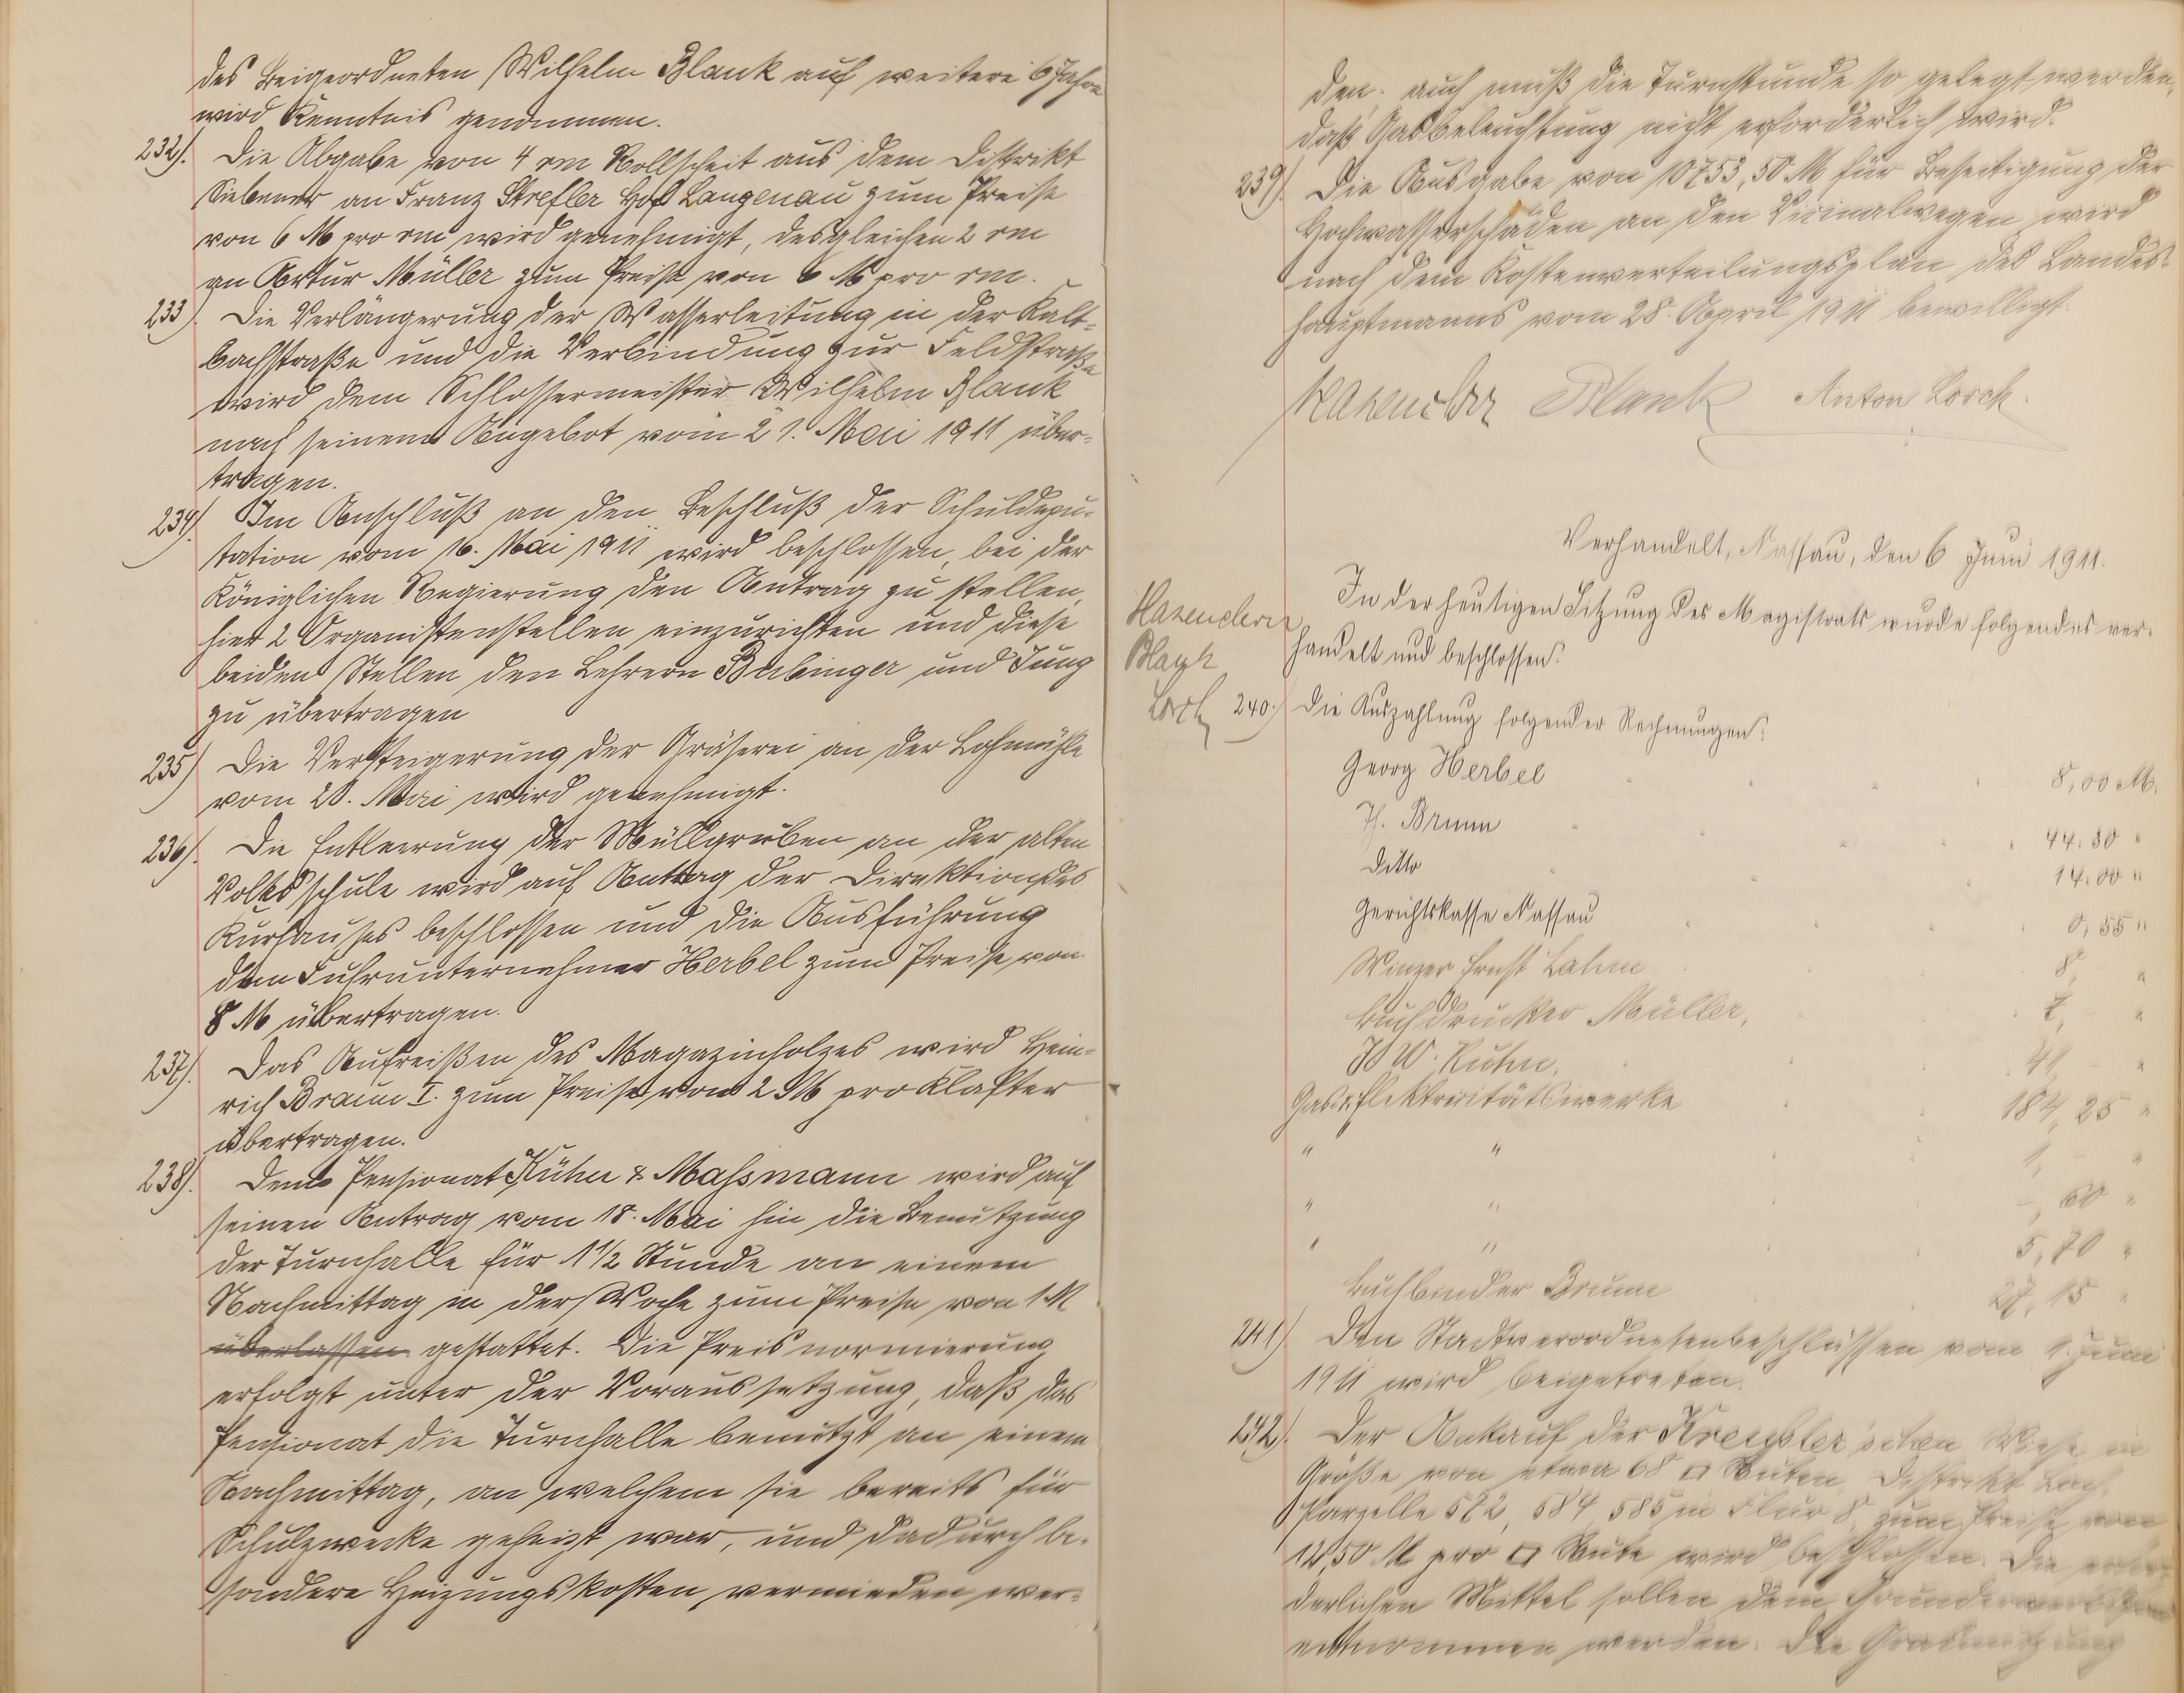 des Beigeordneten Wilhelm Blank auf weitere 6 Jahre
wird Kenntnis genommen.
232). Die Abgabe von 4 rm Rollscheit aus dem Distrikt
an Franz Strefler Hof Langenau zum Preise
von 6 M pro rm wird genehmigt, desgleichen 2 rm
an Artur Müller zum Preise von 6 M pro rm.
233). Die Verlängerung der Wasserleitung in der Kalt-
bachstraße und die Verbindung zur Feldstraße
wird dem Schlossermeister Wilhelm Blank
nach seinem Angebot vom 21. Mai 1911 über-
tragen.
234). Im Anschluß an den Beschluß der Schuldepu-
tation vom 16. Mai 1911 wird beschlossen, bei der
Königlichen Regierung den Antrag zu stellen,
hier 2 Organistenstellen einzurichten und diese
beiden Stellen den Lehrern Bubinger und Jung
zu übertragen
235) Die Versteigerung der Gräserei an der Lohmühle
vom 20. Mai wird genehmigt.
236). Die Entleerung der Müllgruben an der alten
Volksschule wird auf Antrag der Direktion des
Kurhauses beschlossen und die Ausführung
dem Fuhrunternehmer Herbel zum Preise von
8 M übertragen.
237). Das Aufreißen des Magazinholzes wird Hein-
rich Braun I. zum Preise von 2 M pro Klafter
übertragen.
238). Dem Pensionat Kühn & Massmann wird auf
seinen Antrag vom 18. Mai hin die Benutzung
der Turnhalle für 1 1/2 Stunde an einem
Nachmittag in der Woche zum Preise von 1 M
überlassen gestattet. Die Preisnormierung
erfolgt unter der Voraussetzung, daß das
Pensionat die Turnhalle benutzt an einem
Nachmittag, an welchem sie bereits für
Schulzwecke geheizt war, und dadurch be-
sondere Heizungskosten vermieden wer-
den; auch muß die Turnstunde so gelegt werden,
daß Gasbeleuchtung nicht erforderlich wird.
239). Die Ausgabe von 10753,50 M für Beseitigung der
Hochwasserschäden an den Vicinalwegen wird
nach dem Kostenverteilungsplan des Landes-
hauptmanns vom 28. April 1911 bewilligt.
Hasenclever Blank Anton Lorch.
Verhandelt, Nassau, den 6 Juni 1911.
In der heutigen Sitzung des Magistrats wurde folgendes ver-
handelt und beschlossen:
Hasenclever
Blank
Lorch
240.) Die Auszahlung folgender Rechnungen:
Georg Herbel 8,00 M.
Th. Brunn 44,30 "
Ditto 14,00 "
Gerichtskasse Nassau 0,55 "
Winzer Ernst Lahm 8 "
Buchdrucker Müller, 7, - "
J W. Kuhn, 41 - "
Gas & Elektricitätswerke 184,25 "
" " 1, - "
" " -,60 "
" " 5,70 "
Buchbinder Brunn 27,15 "
241). Den Stadtverordnetenbeschlüssen vom 1. Juni
1911 wird beigetreten.
242). Der Ankauf der Kreusler'schen Wiese in
Größe von etwa 68 □ Ruten, Distrikt Bach,
Parzelle 582, 584, 585 in Flur 8, zum Preise von
12,50 M pro □ Rute wird beschlossen. Die erfor-
derlichen Mittel sollen dem
entnommen werden. Die Grasnutzung